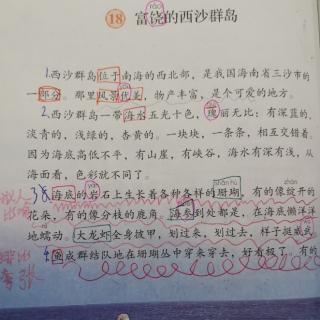 ráo
18 富饶的西沙群岛
1.西沙群岛位于南海的西北部，是我国海南省三沙市的
yōu
一部分。那里风景优美，物产丰富，是个可爱的地方。
guī
2.西沙群岛一带海水五光十色，瑰丽无比：有深蓝的，
淡青的，浅绿的，杏黄的。一块块，一条条，相互交错着。
因为海底高低不平，有山崖，有峡谷，海水有深有浅，从
海面看，色彩就不同了。
yán shān hú zhàn
3 海底的岩石上生长着各种各样的珊瑚，有的像绽开的
拟人
花朵，有的像分枝的鹿角。海参到处都是，在海底懒洋洋
比喻
地蠕动。大龙虾全身披甲，划过来，划过去，样子挺威武。
4 鱼成群结队地在珊瑚丛中穿来穿去，好看极了。有的
夸张